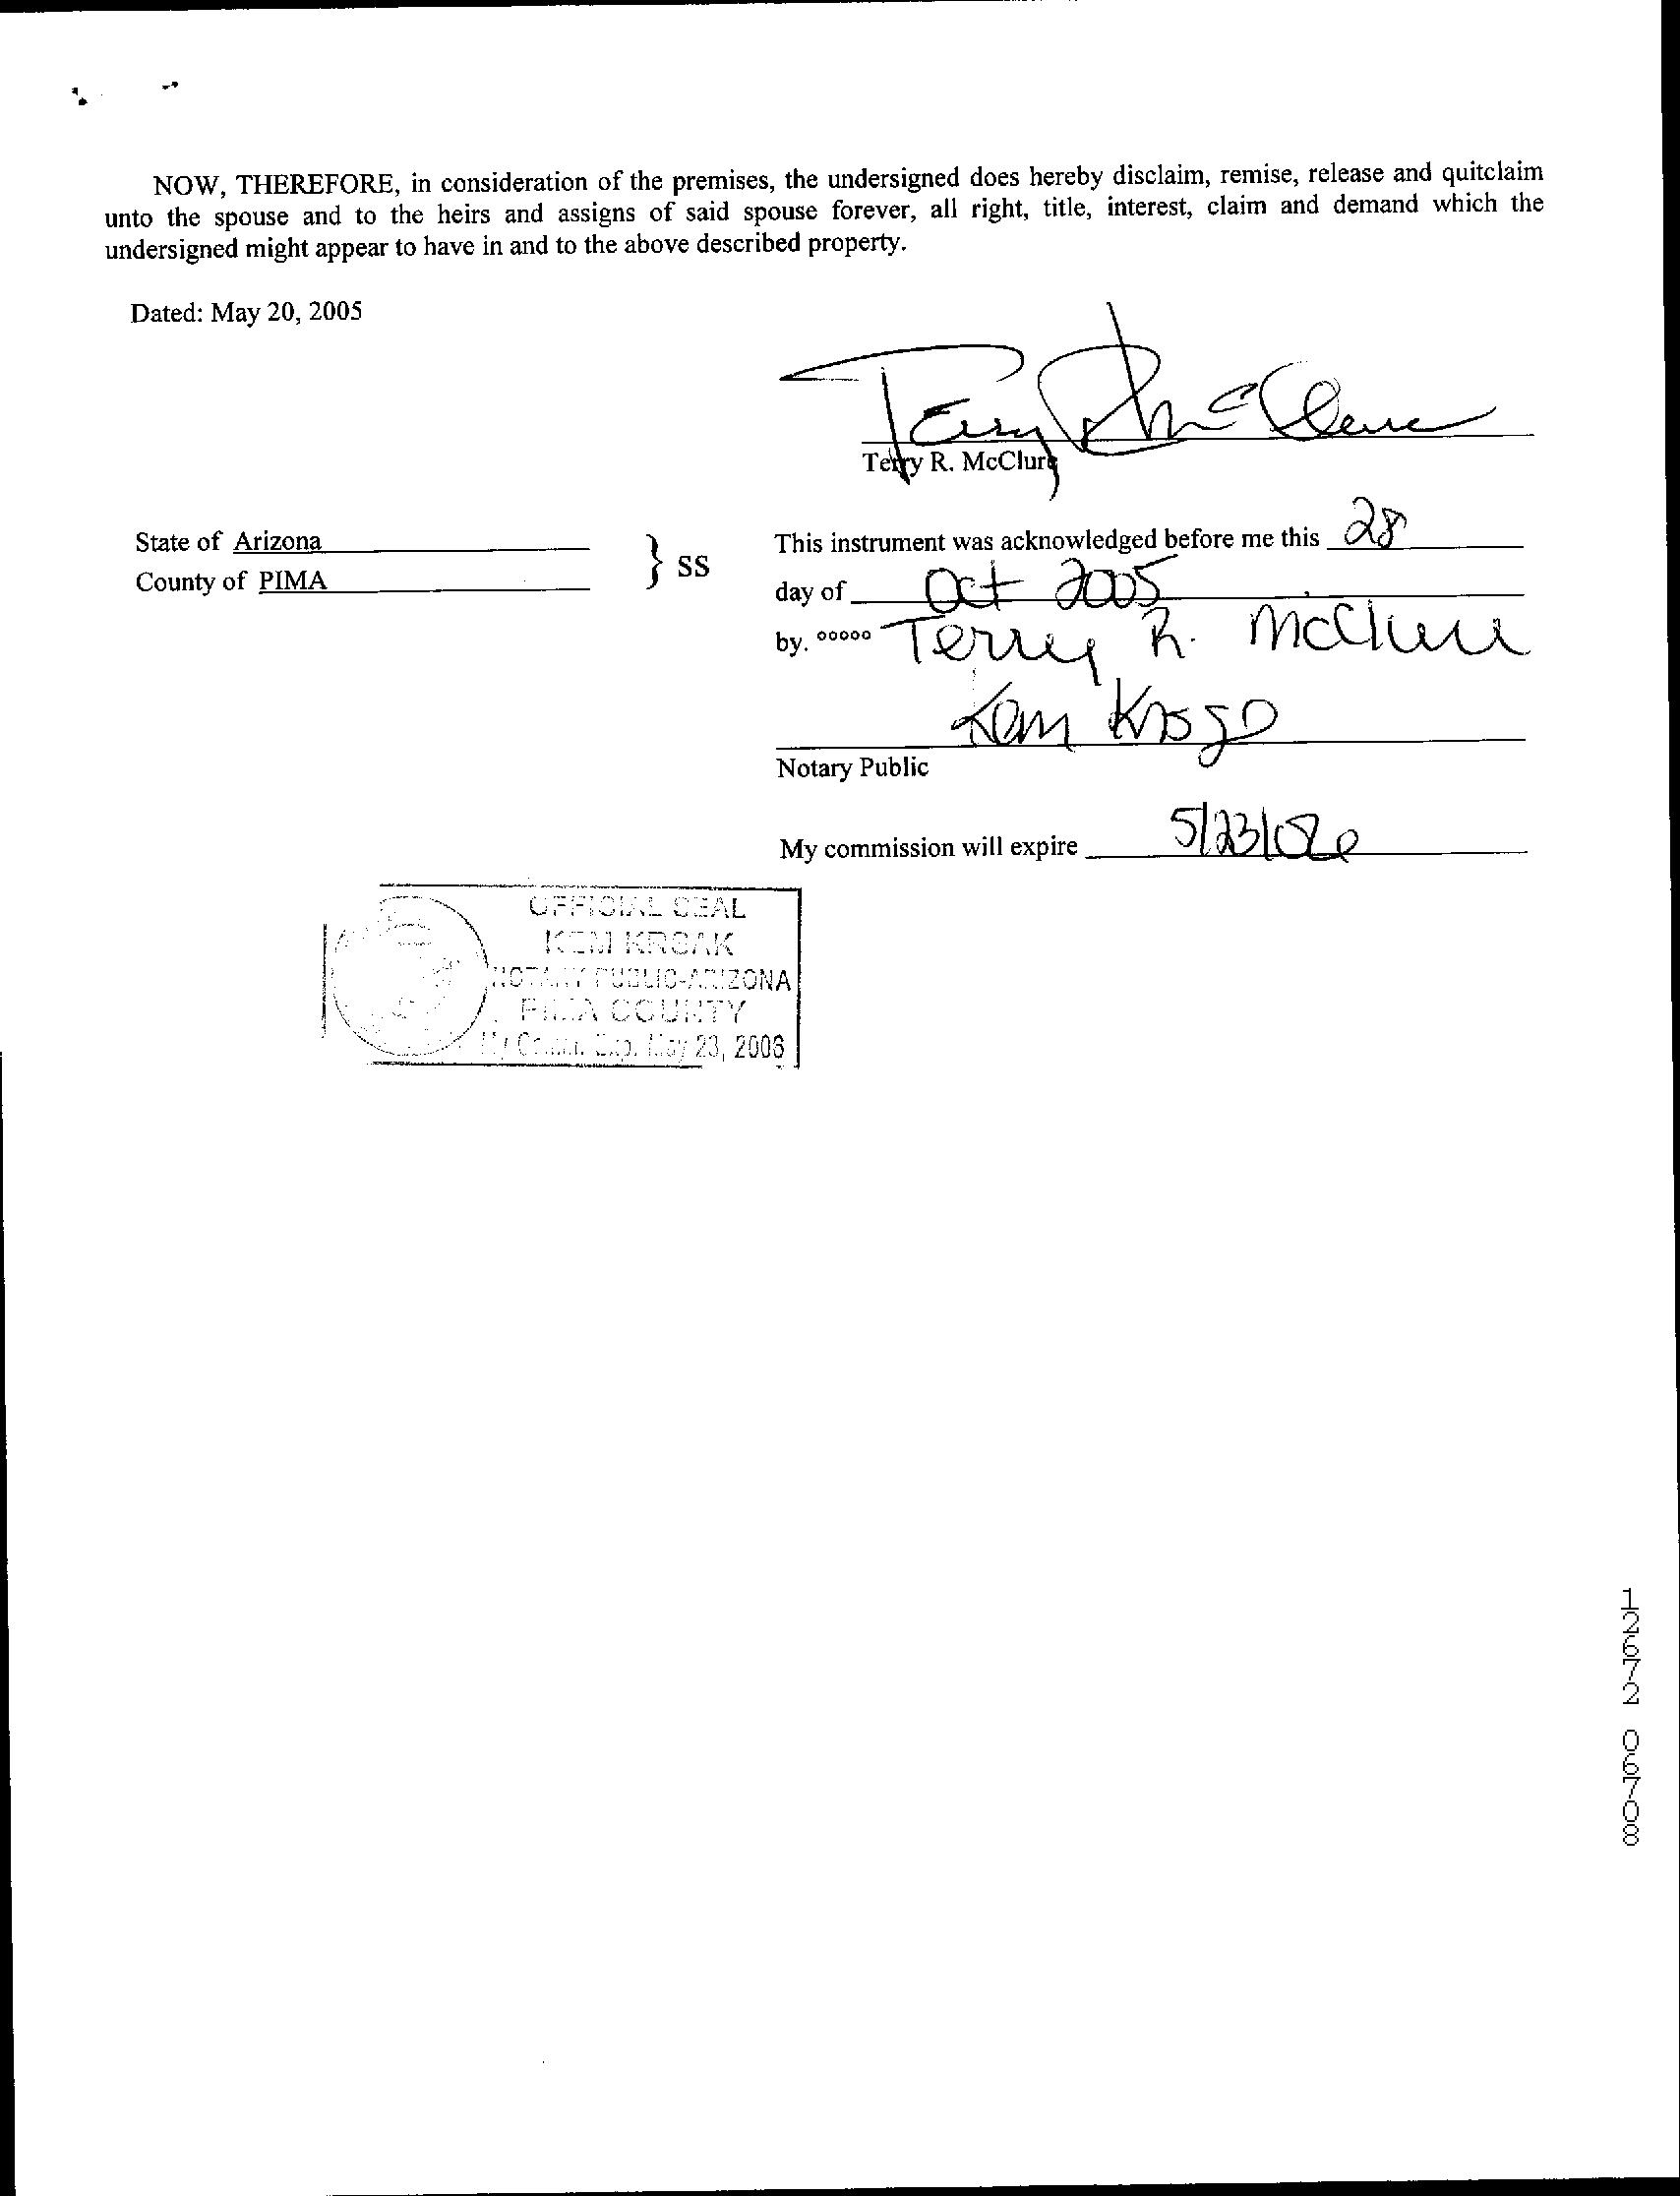 NOW, THEREFORE, in consideration of the premises, the undersigned does hereby disclaim, remise, release and quitclaim
unto the spouse and to the heirs and assigns of said spouse forever, all right, title, interest, claim and demand which the
undersigned might appear to have in and to the above described property.
Dated: May 20, 2005
Terry R McClure
Terry R. McClure
State of Arizona
County of PIMA
} SS
This instrument was acknowledged before me this 28
day of Oct 2005
by. ooooo Terrey R. McClure
Kem
Notary Public
My commission will expire 5/23/06
OFFICIAL SEAL
KEM KRCAK
NOTARY PUBLIC-ARIZONA
PIMA COUNTY
My Comm. Exp. May 23, 2006
12672 06708